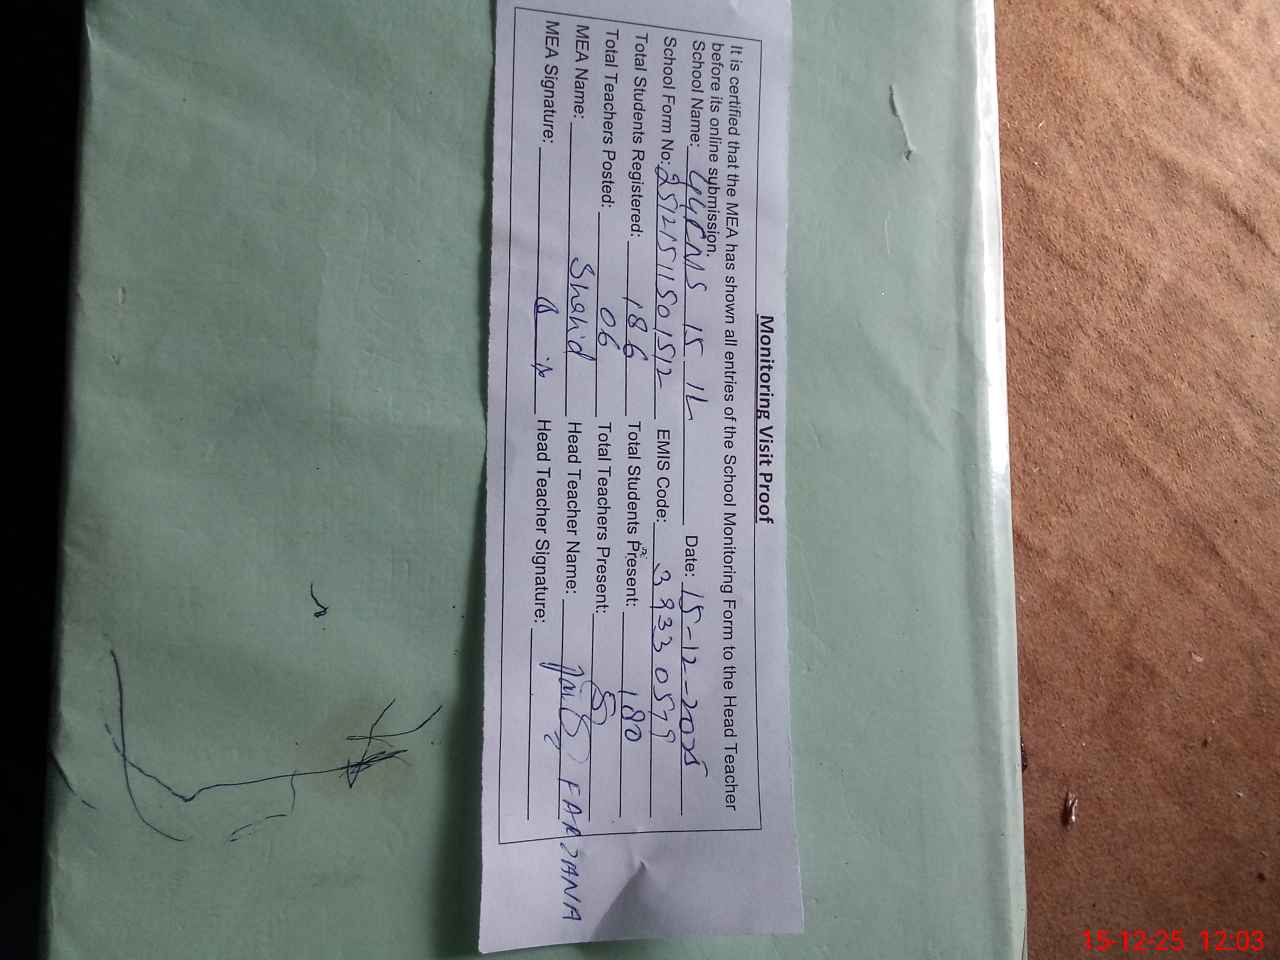 Monitoring Visit Proof
It is certified that the MEA has shown all entries of the School Monitoring Form to the Head Teacher
before its online submission.
School Name: 15 1L Date: 15-12-2025
School Form No: 25121511501512 EMIS Code: 39330579
Total Students Registered: 186 Total Students Present: 180
Total Teachers Posted: 06 Total Teachers Present:
MEA Name: Shahid Head Teacher Name: FARZANA
MEA Signature: Head Teacher Signature:
15-12-25 12:03